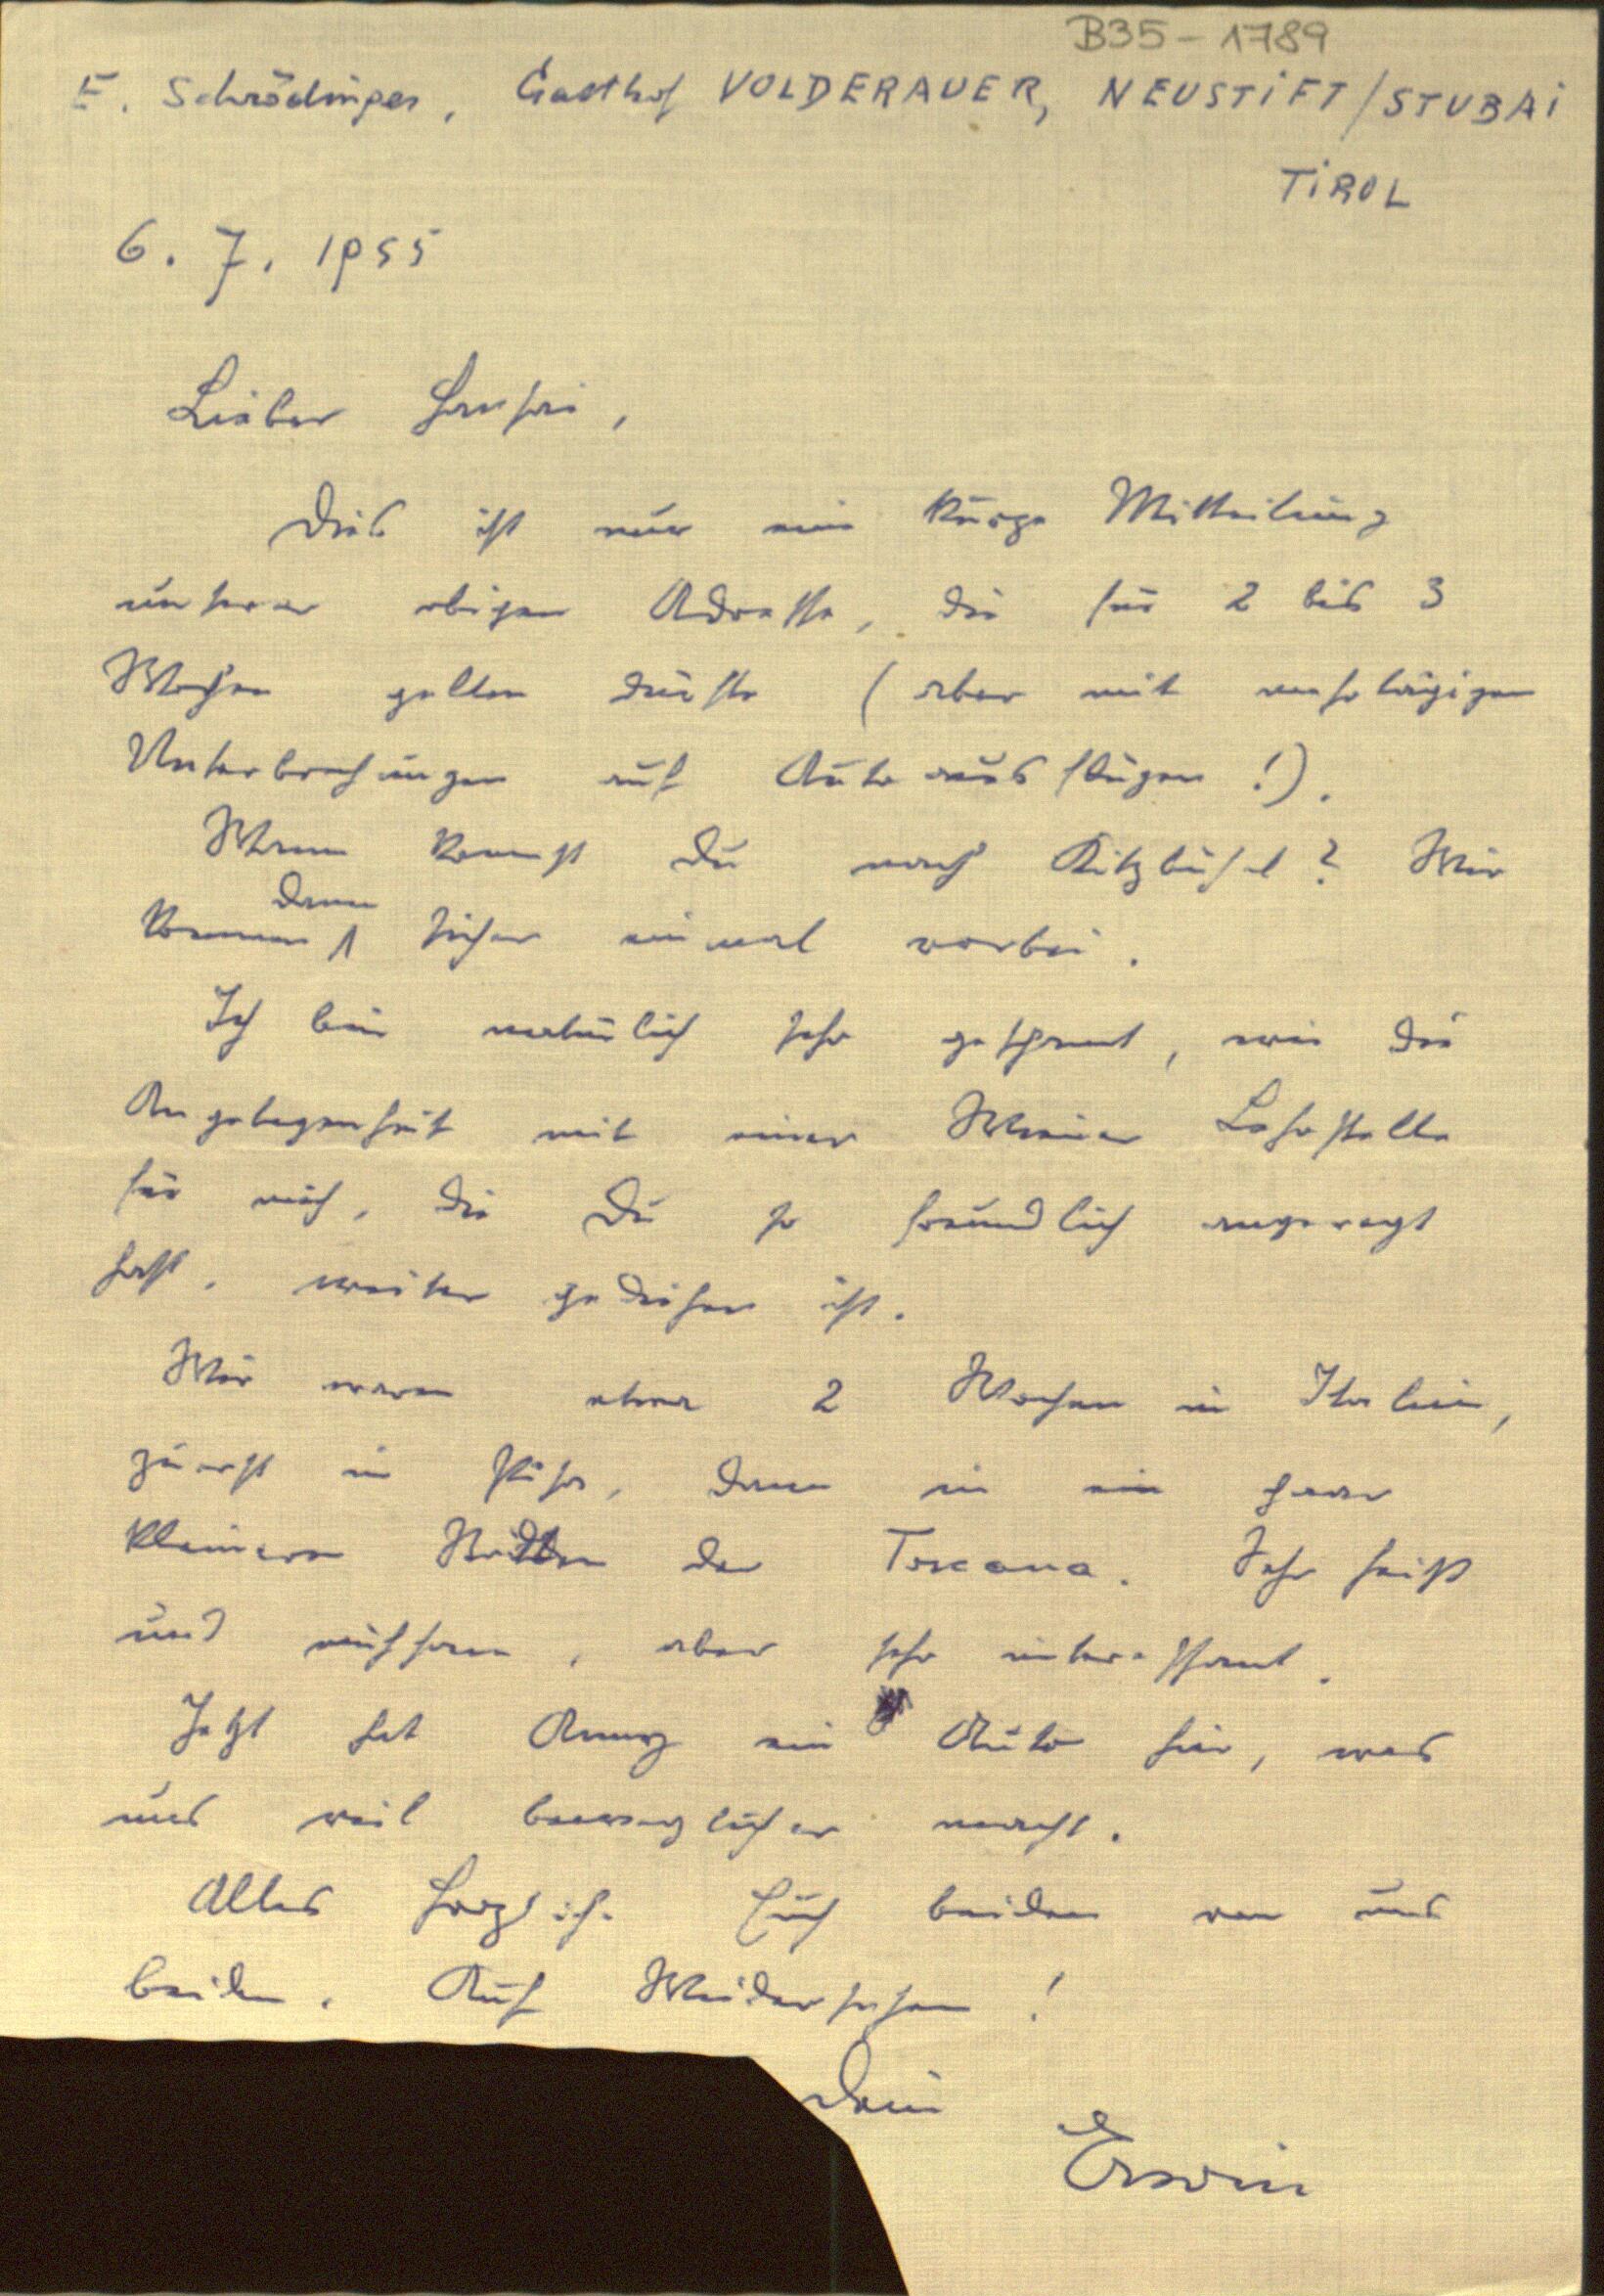 B35-1789
E. Schrödinger, Gasthof VOLDERAUER, NEUSTiFT/STUBAi
TiROL
6. 7. 1955
Lieber Hansi,
Dies ist nur eine kurze Mitteilung
unserer obigen Adresse, die für 2 bis 3
Wochen gelten dürfte (aber mit mehrtägigen
Unterbrechungen auf Autoausflügen!).
Wann kommst Du nach Kitzbühel? Wir
dann
kommen sicher einmal vorbei.
Ich bin natürlich sehr gespannt, wie die
Angelegenheit mit einer Wiener Lehrstelle
für mich, die Du so freundlich angeregt
hast, weiter gediehen ist.
Wir waren etwa 2 Wochen in Italien,
zuerst in Pisa, dann in ein paar
kleineren Städten der Toscana. Sehr heiß
und mühsam, aber sehr interessant.
Jetzt hat Anny ein Auto hier, was
uns viel beweglicher macht.
Alles Herzliche Euch beiden von uns
beiden. Auf Wiedersehen!
Dein
Erwin